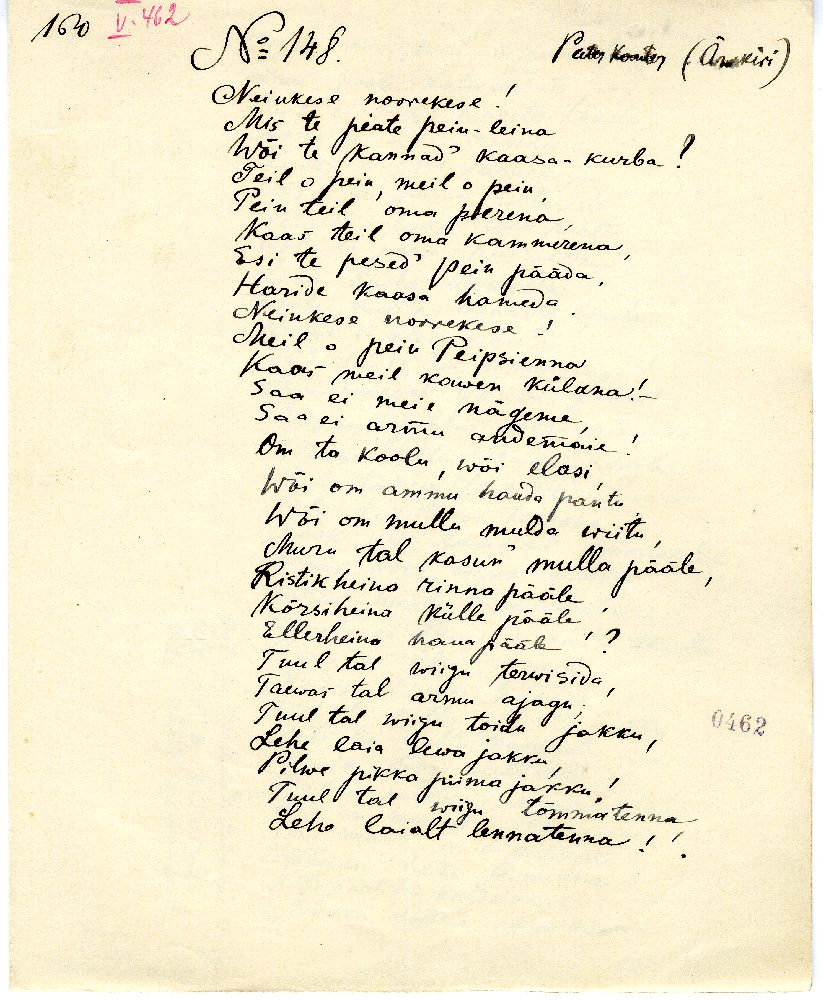 160 V. 462
№ 148. (Ärakiri)
Neiukese noorekese!
Mis te peate pein-leina
Wõi te kannad' kaasa-kurba?
Teil o pein, meil o pein,
Pein teil oma perena,
Kaas teil oma kammerena,
Esi te pesed' pein pääda,
Haride kaasa hameda.
Neiukese noorekese!
Meil o pein Peipsienna
Kaas meil kawen küläna!-
Saa ei meie nägeme,
Saa ei armu andemaie!
Om ta koolu, wõi elasi,
Wõi om ammu hauda pantu,
Wõi om mulla mulda wiitu,
Muru tal kasun' mulla pääle,
Ristikheina rinna pääle
Kõrsiheina külle pääle,
Ellerheina haua pääle!?
Tuul tal wiigu terwisida,
Taewas tal armu ajagu,
Tuul tal wiigu toidu jakku,
Lehe laia lewa jakku,
Pilwe pikka piima jakku!
Tuul tal wiigu tõmmatenna
Lehe laialt lennatenna!!
0462